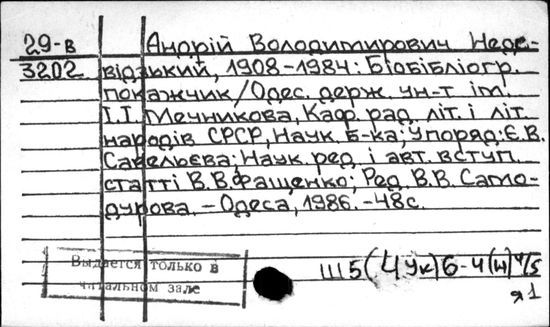 29-в Андрій Володимирович Неде-
3202 відзький, 1908-1984: Біобібліогр.
покажчик/Одес. держ. ун-т ім.
І.І. Мечникова, Каф. рад. літ. і літ.
народів СРСР, Наук. б-ка; Упоряд.: Є.В.
Савельєва; Наук. ред. і авт. вступ.
статті В.В. Фащенко; Ред. В.В. Само-
дурова. – Одеса, 1986. – 48 с.
Выдается только в
читальном зале
Ш5(4Ук)6-4(н)4/5
я1